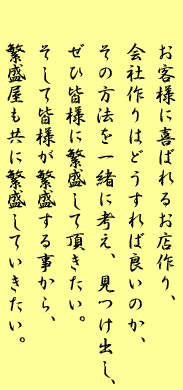 お客様に喜ばれるお店作り、
会社作りはどうすれば良いのか、
その方法を一緒に考え、見つけ出し、
ぜひ皆様に繁盛して頂きたい。
そして皆様が繁盛する事から、
繁盛屋も共に繁盛していきたい。